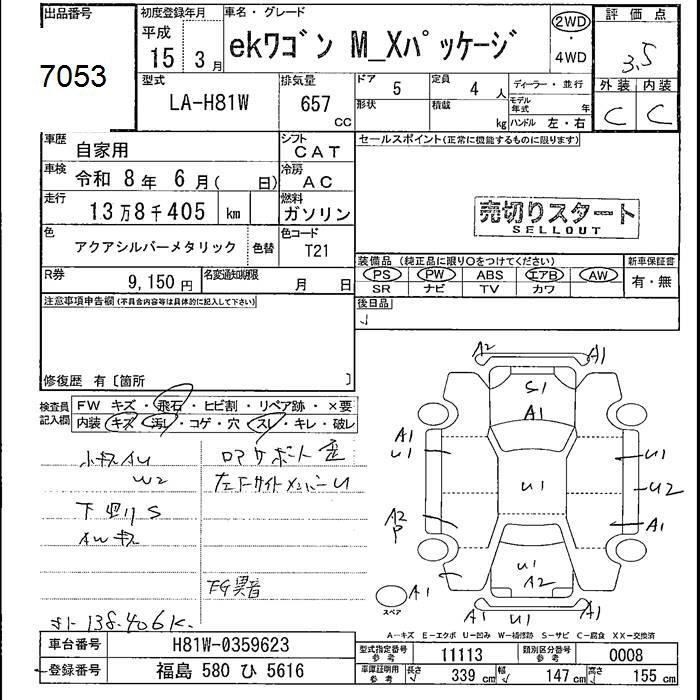 出品番号
7053
初度登録年月
平成
15 3月
車名・グレード
ekワゴン M_Xパッケージ
2WD
・
4WD
評価点
3.5
外装 内装
C C
型式
LA-H81W
排気量
657
CC
ドア 5
定員 4 人
ディーラー・並行
形状
積載 kg
モデル年式 年
ハンドル 左・右
車歴 自家用
シフト CAT
車検 令和 8年 6月( 日)
冷房 AC
走行 13万8千405 km
燃料 ガソリン
色 アクアシルバーメタリック 色替
色コード T21
R券 9,150円
名変通知期限 月 日
セールスポイント(正常に機能するものに限ります)
売切りスタート
SELLOUT
装備品 (純正品に限り○をつけてください)
PS PW ABS エアB AW
SR ナビ TV カワ
新車保証書
有・無
後日品
注意事項申告欄(不具合内容等は具体的に記入して下さい)
修復歴 有〔箇所 〕
検査員記入欄
FW キズ・飛石・ヒビ割・リペア跡・×要
内装 キズ・汚レ・コゲ・穴・スレ・キレ・破レ
小キズAU
W2
下回りS
AWキズ
ロアサポート歪
左F サイドメンバーU
FG異音
138.406K.
A2 A1
S1
A1
A1
U1
U1
U1
U2
A2
P
A1
U1
A2
A1
A1 U1 A1
スペア
A-キズ E-エクボ U-凹み W-補修跡 S-サビ C-腐食 XX-交換済
車台番号 H81W-0359623
登録番号 福島 580 ひ 5616
型式指定番号 参考 11113
類別区分番号 参考 0008
車庫証明用 参考 長さ 339 cm 幅 147 cm 高さ 155 cm